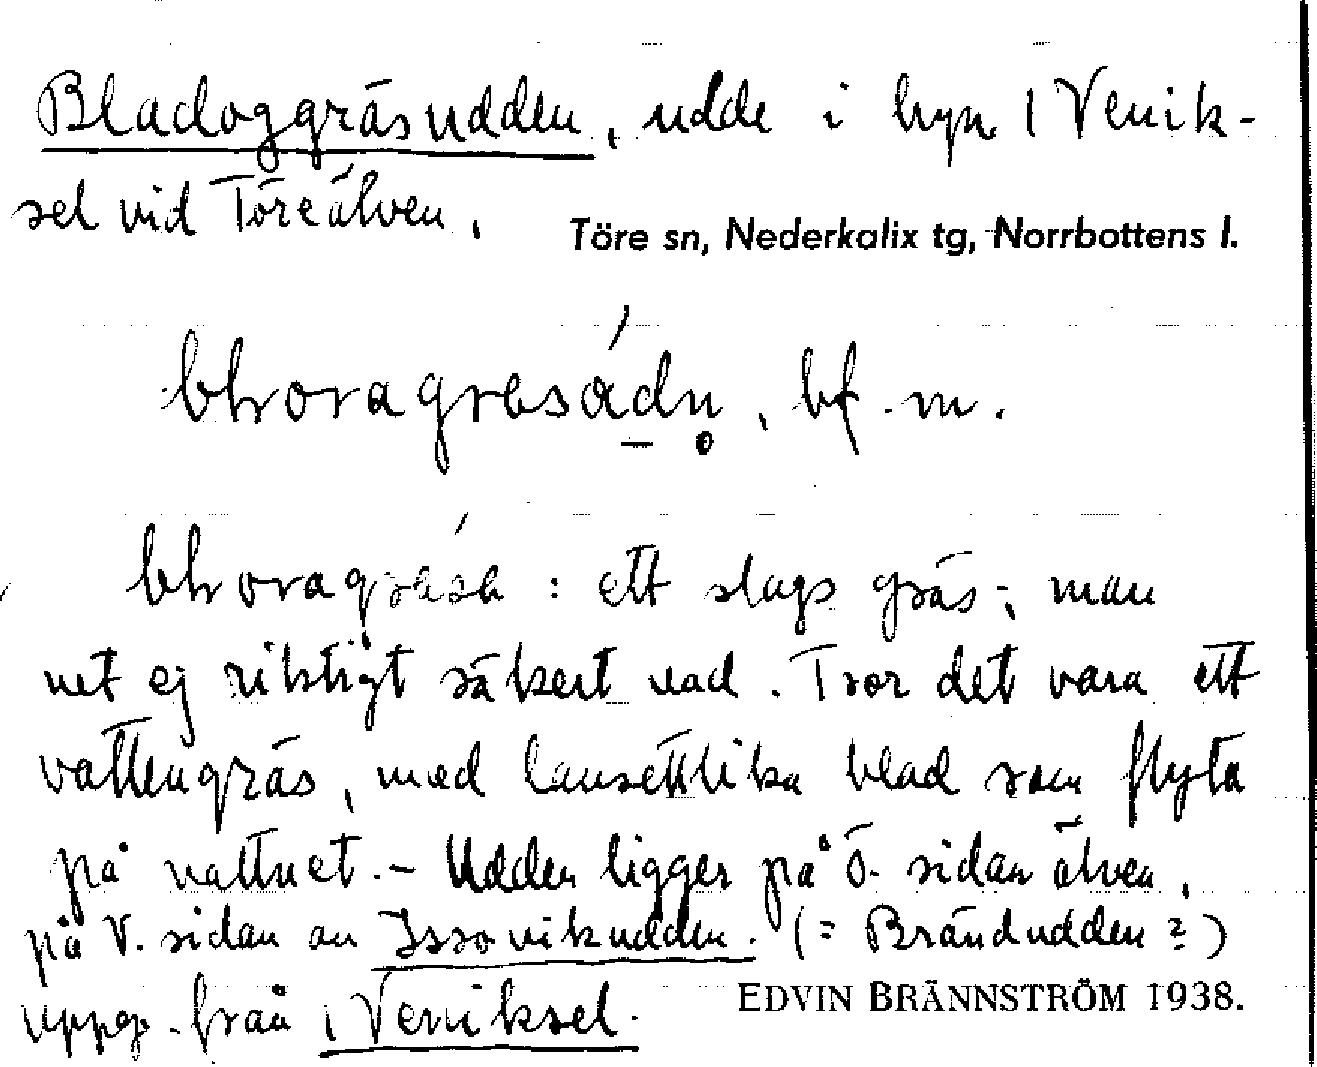 Bladoggräsudden, udde i byn Venik-
sel vid Töreälven.
Töre sn, Nederkalix tg, Norrbottens l.
bf. m.
: ett slags gräs; man
vet ej riktigt säkert vad. Tror det vara ett
vattengräs, med lansettlika blad som flyta
på vattnet. - Udden ligger på ö. sidan älven,
på V. sidan av Issovikudden. (= Brändudden?)
uppg. från Veniksel.
EDVIN BRÄNNSTRÖM 1938.